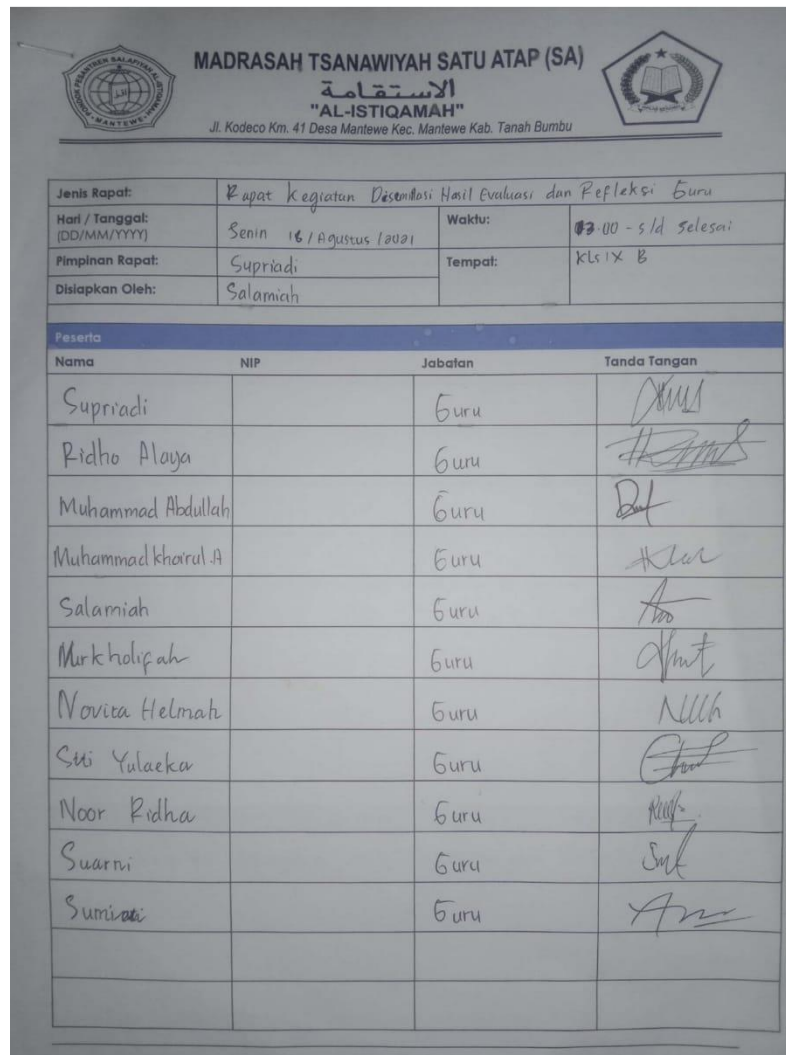 PONDOK PESANTREN SALAFIYAH AL-ISTIQAMAH
MANTEWE
MADRASAH TSANAWIYAH SATU ATAP (SA)
الاستقامة
"AL-ISTIQAMAH"
Jl. Kodeco Km. 41 Desa Mantewe Kec. Mantewe Kab. Tanah Bumbu
Jenis Rapat: Rapat Kegiatan Hasil Evaluasi dan Refleksi Guru
Hari / Tanggal: Senin 16 / Agustus / 2021 Waktu: 13.00 - s/d Selesai
(DD/MM/YYYY)
Pimpinan Rapat: Supriadi Tempat: Kls IX B
Disiapkan Oleh: Salamiah
Peserta
Nama NIP Jabatan Tanda Tangan
Supriadi Guru
Ridho Alaya Guru
Muhammad Abdullah Guru
Muhammad Khairul .A Guru
Salamiah Guru
Nurkholifah Guru
Novita Helmah Guru
Siti Yulaeka Guru
Noor Ridha Guru
Suarni Guru
Guru